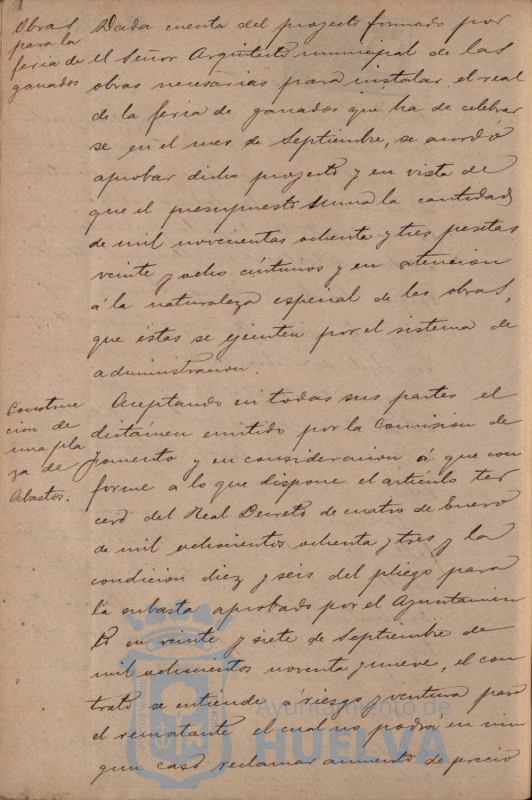 Obras
para la
feria de
ganados
Dada cuenta del proyecto formado por
el Señor Arquitecto municipal de las
obras necesarias para instalar el real
de la feria de ganados que ha de celebrar
se en el mes de Septiembre, se acordó
aprobar dicho proyecto y en vista de
que el presupuesto suma la cantidad
de mil novecientas ochenta y tres pesetas
veinte y ocho céntimos y en atencion
á la naturaleza especial de las obras,
que éstas se ejecuten por el sistema de
administracion.
Construc
cion de
una pla
za de
Abastos.
Aceptando en todas sus partes el
dictámen emitido por la Comision de
Fomento y en consideracion á que con
forme a lo que dispone el artículo ter
cero del Real Decreto de cuatro de Enero
de mil ochocientos ochenta y tres y la
condicion diez y seis del pliego para
la subasta aprobado por el Ayuntamien
to en veinte y siete de Septiembre de
mil ochocientos noventa y nueve, el con
trato se entiende á riesgo y ventura para
el rematante el cual no podrá en nin
gun caso reclamar aumento de precio
Ayuntamiento de
HUELVA